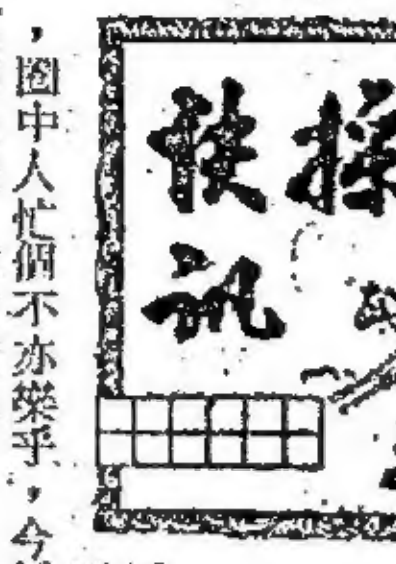 快訊
，圈中人忙個不亦樂乎，今